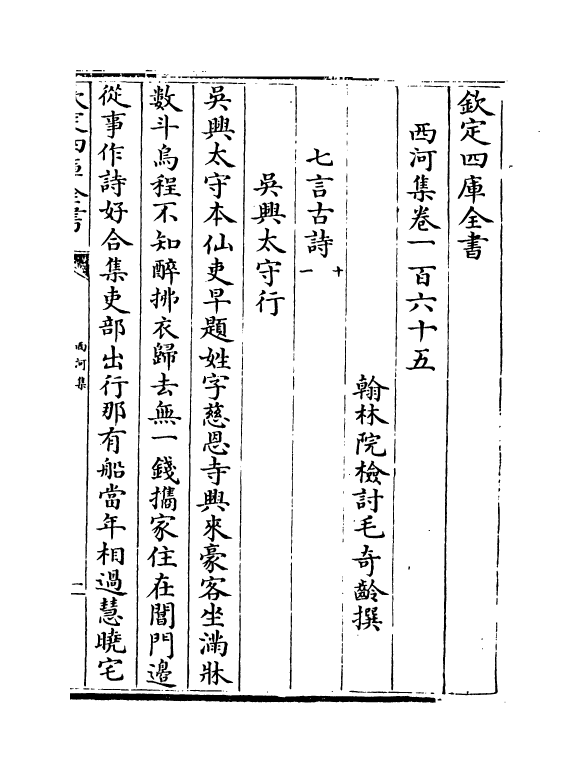 欽定四庫全書
西河集卷一百六十五
翰林院檢討毛奇齡撰
七言古詩十一
吳興太守行
吳興太守本仙吏早題姓字慈恩寺興來豪客坐滿牀
數斗烏程不知醉拂衣歸去無一錢攜家住在閶門邊
從事作詩好合集吏部出行那有船當年相過慧曉宅
欽定四庫全書
西河集
一